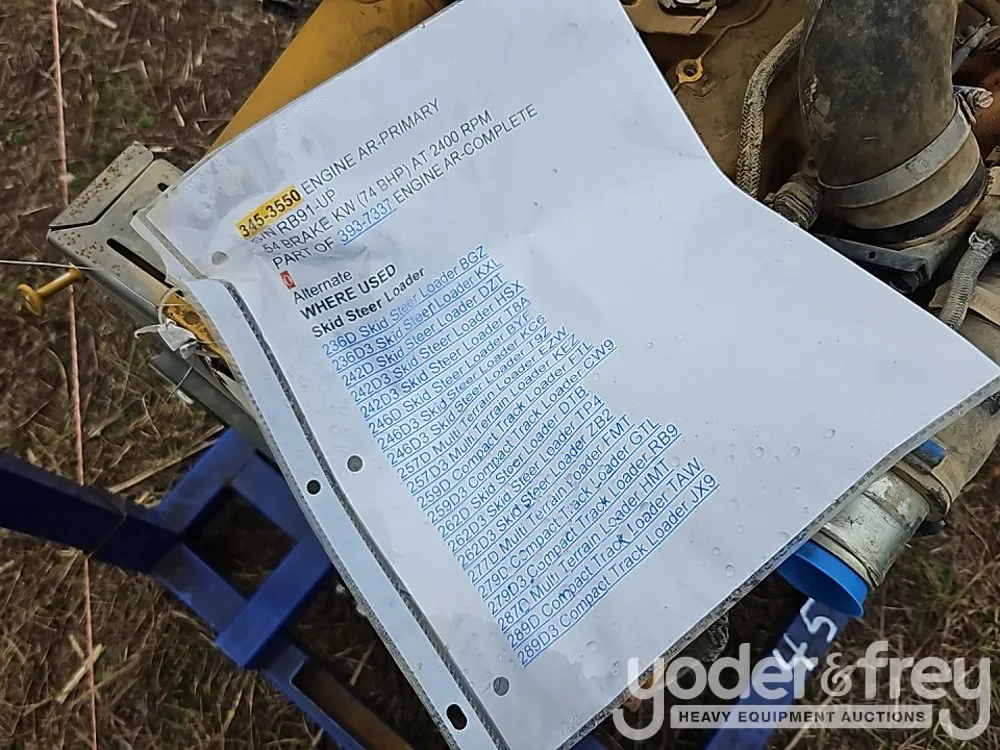 345-3550 ENGINE AR-PRIMARY
S/N RB91-UP
54 BRAKE KW (74 BHP) AT 2400 RPM
PART OF 393-7337 ENGINE AR-COMPLETE
Alternate
WHERE USED
Skid Steer Loader
236D Skid Steer Loader BGZ
236D3 Skid Steer Loader KXL
242D Skid Steer Loader DZT
242D3 Skid Steer Loader HSX
242D3 Skid Steer Loader TBA
246D Skid Steer Loader BYF
246D3 Skid Steer Loader KG6
246D3 Skid Steer Loader T9Z
257D Multi Terrain Loader EZW
257D3 Multi Terrain Loader KEZ
259D Compact Track Loader FTL
259D3 Compact Track Loader CW9
262D Skid Steer Loader DTB
262D3 Skid Steer Loader TP4
262D3 Skid Steer Loader ZB2
277D Multi Terrain Loader FMT
279D Compact Track Loader GTL
279D3 Compact Track Loader RB9
287D Multi Terrain Loader HMT
289D Compact Track Loader TAW
289D3 Compact Track Loader JX9
45
yoder&frey
HEAVY EQUIPMENT AUCTIONS